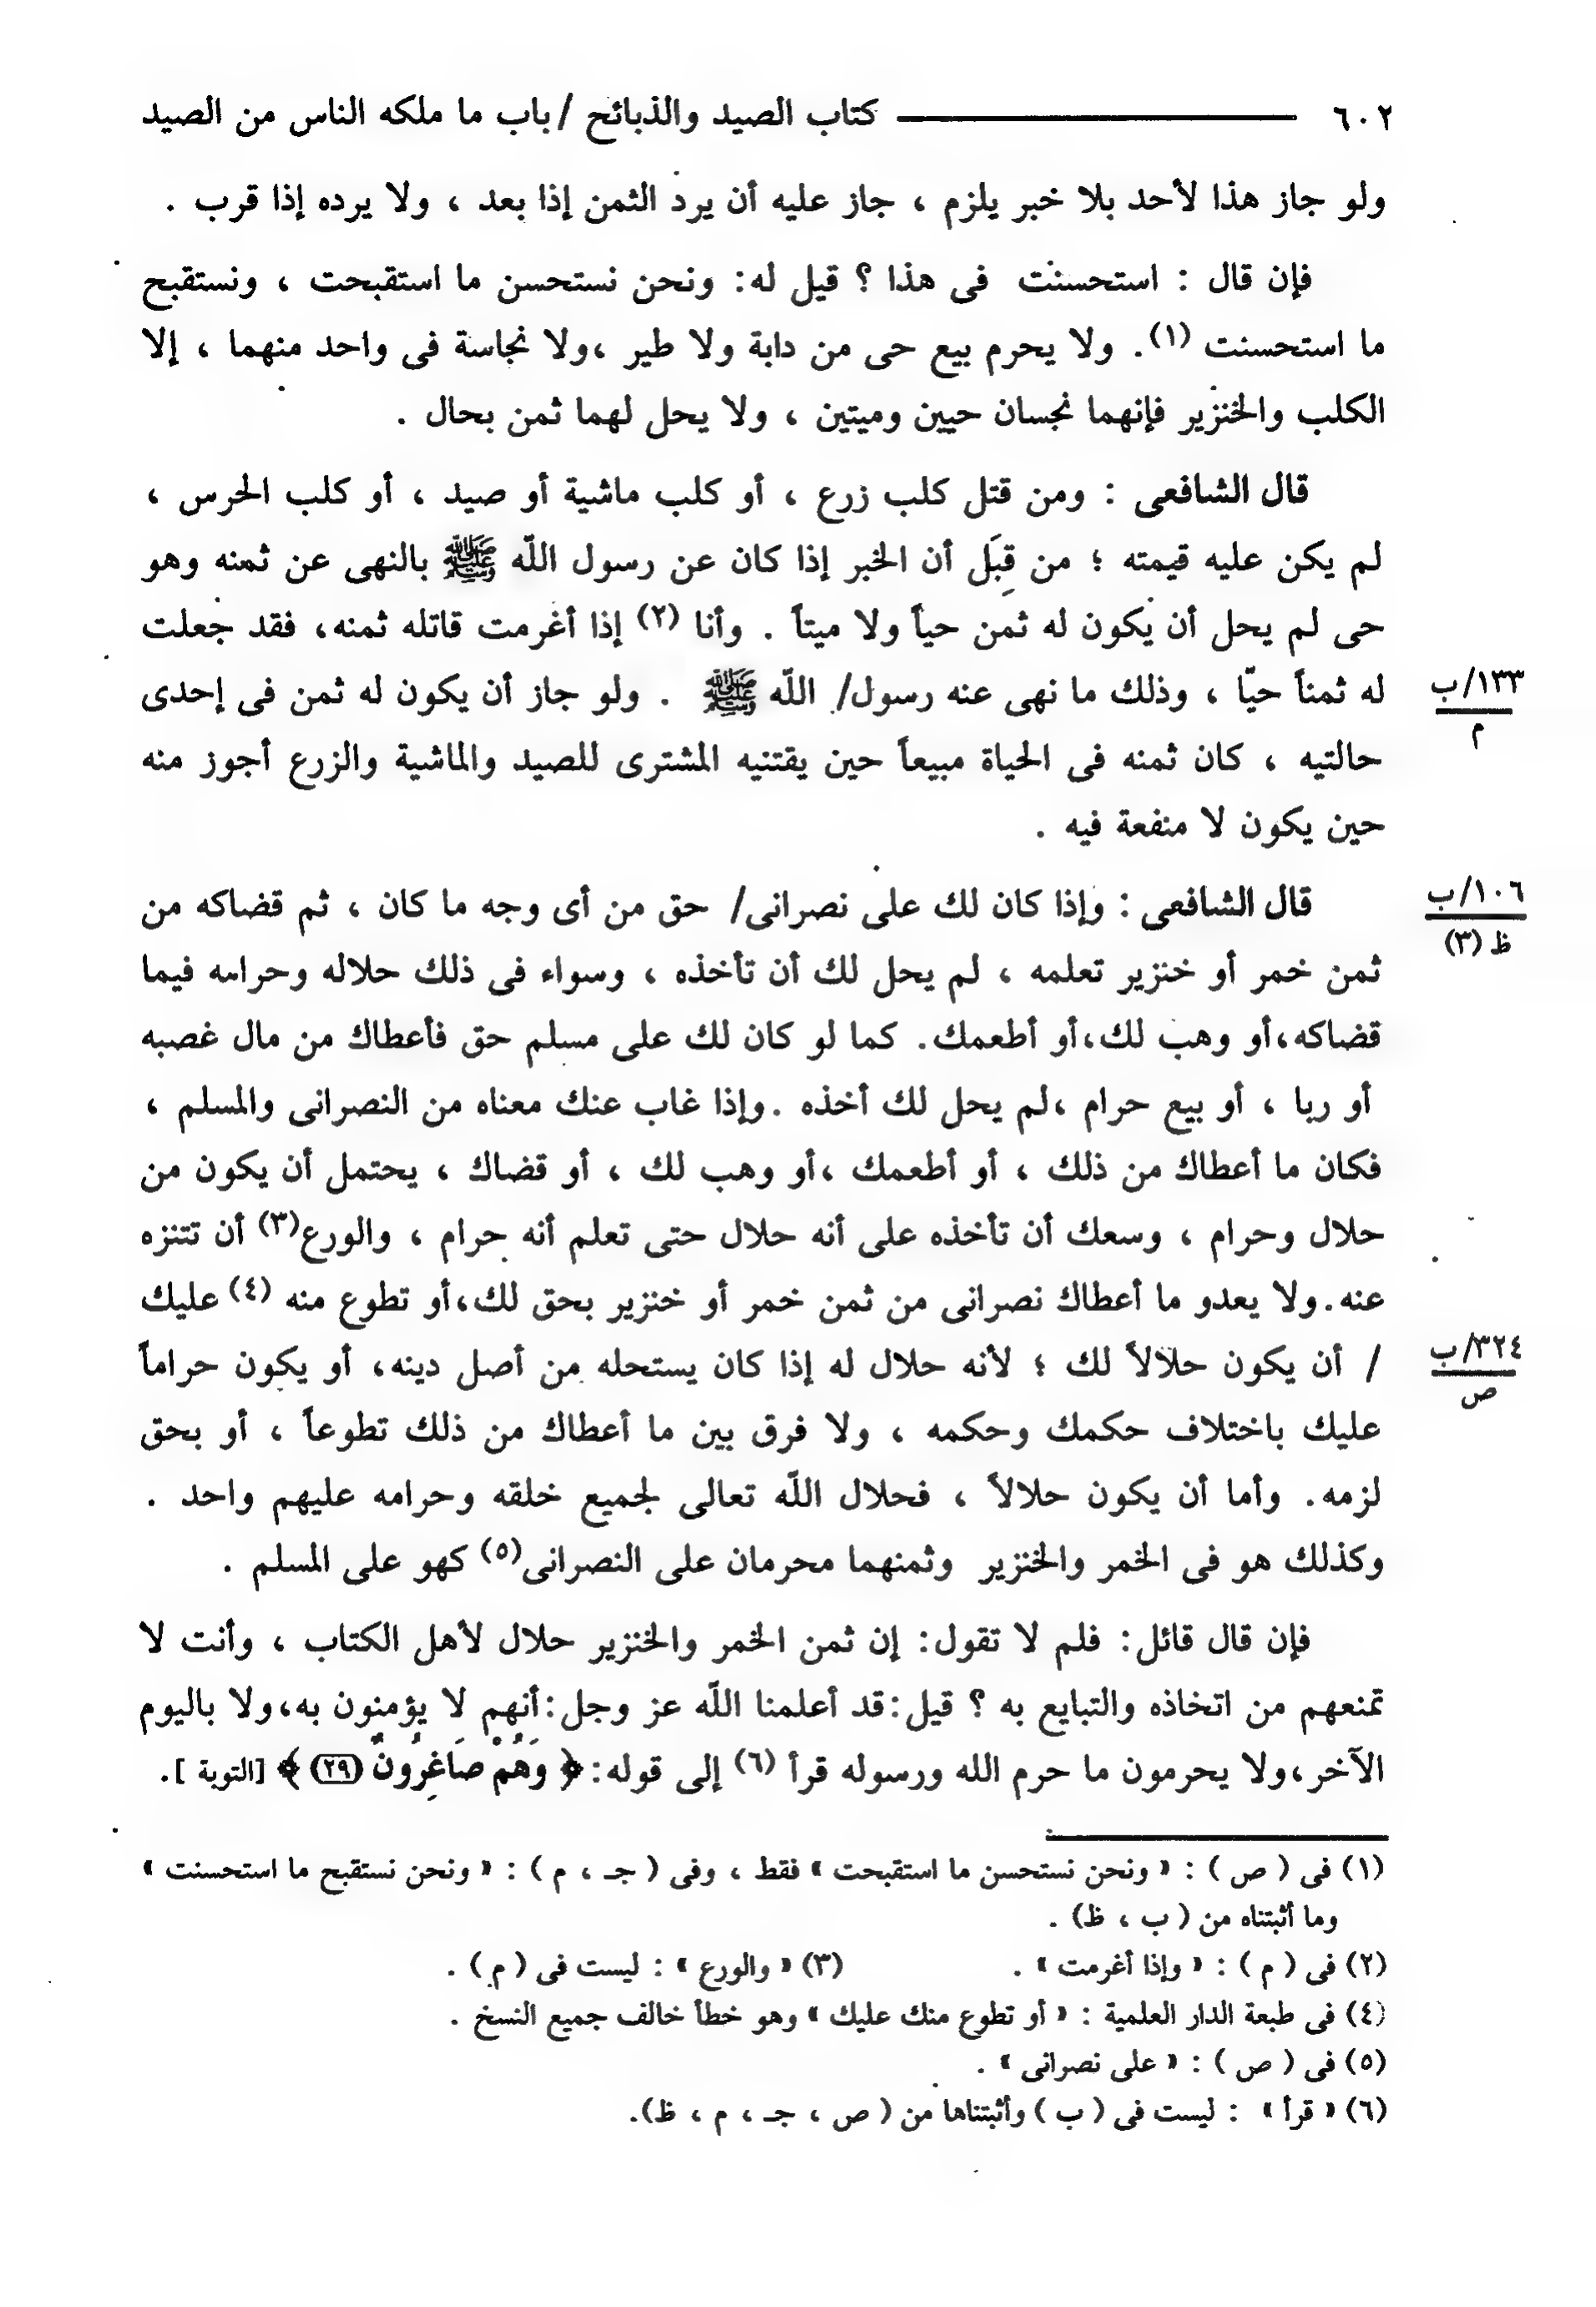 ٦٠٢ ــــــ كتاب الصيد والذبائح / باب ما ملكه الناس من الصيد
ولو جاز هذا لأحد بلا خبر يلزم ، جاز عليه أن يرد الثمن إذا بعد ، ولا يرده إذا قرب .
فإن قال : استحسنت فى هذا ؟ قيل له: ونحن نستحسن ما استقبحت ، ونستقبح
ما استحسنت (١). ولا يحرم بيع حى من دابة ولا طير ،ولا نجاسة فى واحد منهما ، إلا
الكلب والخنزير فإنهما نجسان حيين وميتين ، ولا يحل لهما ثمن بحال .
قال الشافعى : ومن قتل كلب زرع ، أو كلب ماشية أو صيد ، أو كلب الحرس ،
لم يكن عليه قيمته ؛ من قِبَل أن الخبر إذا كان عن رسول اللّه ﷺ بالنهى عن ثمنه وهو
حى لم يحل أن يكون له ثمن حياً ولا ميتاً . وأنا (٢) إذا أغرمت قاتله ثمنه، فقد جعلت
له ثمناً حيّا ، وذلك ما نهى عنه رسول/ اللّه ﷺ . ولو جاز أن يكون له ثمن فى إحدى
١٣٣/ب
م
حالتيه ، كان ثمنه فى الحياة مبيعاً حين يقتنيه المشترى للصيد والماشية والزرع أجوز منه
حين يكون لا منفعة فيه .
قال الشافعى : وإذا كان لك على نصرانى/ حق من أى وجه ما كان ، ثم قضاكه من
١٠٦/ب
ظ (٣)
ثمن خمر أو خنزير تعلمه ، لم يحل لك أن تأخذه ، وسواء فى ذلك حلاله وحرامه فيما
قضاكه،أو وهب لك،أو أطعمك. كما لو كان لك على مسلم حق فأعطاك من مال غصبه
أو ربا ، أو بيع حرام ،لم يحل لك أخذه .وإذا غاب عنك معناه من النصرانى والمسلم ،
فكان ما أعطاك من ذلك ، أو أطعمك ،أو وهب لك ، أو قضاك ، يحتمل أن يكون من
حلال وحرام ، وسعك أن تأخذه على أنه حلال حتى تعلم أنه حرام ، والورع(٣) أن تتنزه
عنه.ولا يعدو ما أعطاك نصرانى من ثمن خمر أو خنزير بحق لك،أو تطوع منه (٤) عليك
/ أن يكون حلالاً لك ؛ لأنه حلال له إذا كان يستحله من أصل دينه، أو يكون حراماً
٣٢٤/ب
ص
عليك باختلاف حكمك وحكمه ، ولا فرق بين ما أعطاك من ذلك تطوعاً ، أو بحق
لزمه. وأما أن يكون حلالاً ، فحلال اللّه تعالى لجميع خلقه وحرامه عليهم واحد .
وكذلك هو فى الخمر والخنزير وثمنهما محرمان على النصرانى(٥) كهو على المسلم .
فإن قال قائل: فلم لا تقول: إن ثمن الخمر والخنزير حلال لأهل الكتاب ، وأنت لا
تمنعهم من اتخاذه والتبايع به ؟ قيل:قد أعلمنا اللّه عز وجل:أنهم لا يؤمنون به،ولا باليوم
الآخر،ولا يحرمون ما حرم الله ورسوله قرأ (٦) إلى قوله:﴿ وَهُمْ صَاغِرُونَ (٢٩) ﴾ [التوبة ].
(١) فى ( ص ) : « ونحن نستحسن ما استقبحت » فقط ، وفى ( جـ ، م ) : « ونحن نستقبح ما استحسنت »
وما أثبتناه من ( ب ، ظ) .
(٢) فى ( م ) : « وإذا أغرمت » . (٣) « والورع » : ليست فى ( م ) .
(٤) فى طبعة الدار العلمية : « أو تطوع منك عليك » وهو خطأ خالف جميع النسخ .
(٥) فى ( ص ) : « على نصرانى » .
(٦) « قرأ » : ليست فى ( ب ) وأثبتناها من ( ص ، جـ ، م ، ظ).